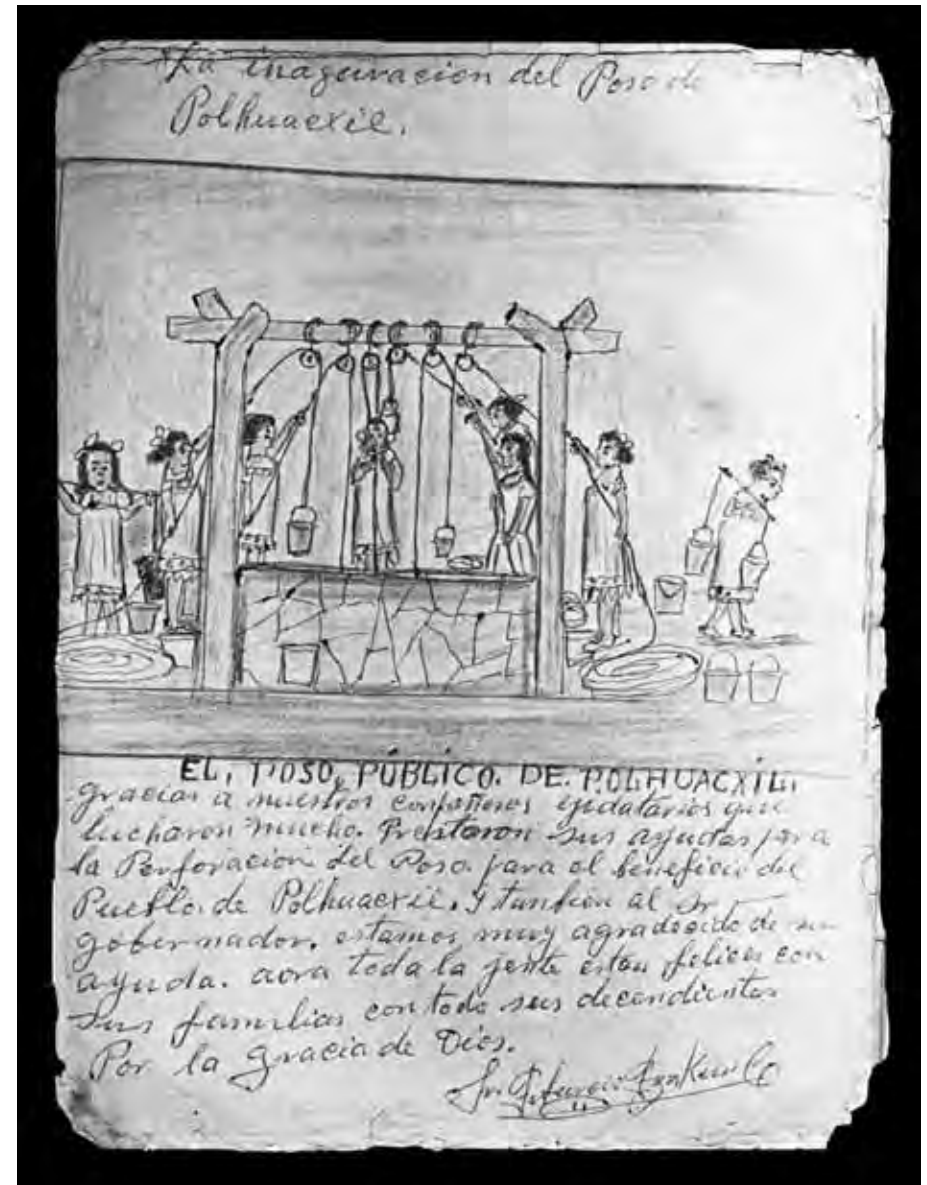 La inaguracion del Poso de
Polhuacxil.
EL, POSO, PÚBLICO. DE. POLHUACXIL,
gracias a nuestros conpañeros ejidatarios que
lucharon mucho. Prestaron sus ayudas para
la Perforacion del Poso. para el beneficio del
Pueblo. de Polhuacxil. y tanbien al Sr
gobernador. estamos muy agradecido de su
ayuda. aora toda la gente estan felices con
sus familias con todo sus decendientes
Por la gracia de Dios.
Sr.